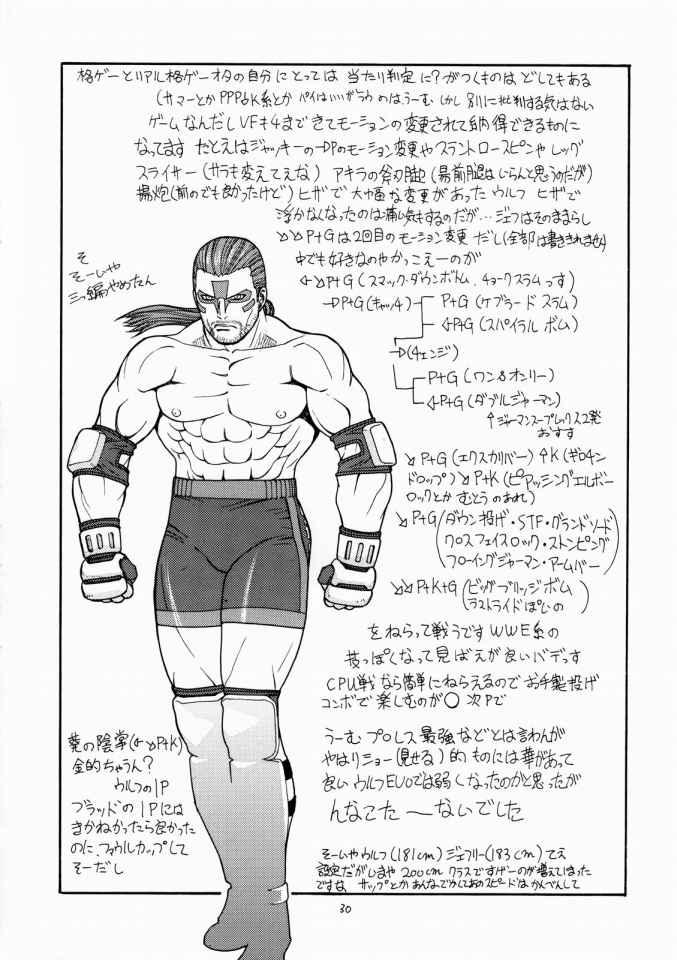 格ゲーとリアル格ゲーオタの自分にとっては 当たり判定に?がつくものは どしてもある
(サマーとか PPP↓K系とか パイはいいがラウのは、うーむ しかし 別に批判する気はない
ゲームなんだし VFも4まできてモーションの変更されて納得できるものに
なってます たとえばジャッキーの→DPのモーション変更やスラントロースピンや レッグ
スライサー (サラも変えてぇな) アキラの斧刃脚 (
揚炮(前のでも良かったけど) ヒザで 大巾な変更があった ウルフ ヒザで
浮かなくなったのは痛い気もするのだが… ジェフはそのままらし
↘↘P+Gは2回目のモーション変更だし (全部は書ききれません)
中でも好きなのやかっこえーのが
←↘P+G (スマック・ダウンボトム、チョークスラムっす)
→P+G (キャッチ) P+G (ケブラード スラム)
←P+G (スパイラル ボム)
→(チェンジ)
P+G (ワン&オンリー)
←P+G (ダブルジャーマン)
↑ジャーマンスープレックス2発
おすす
↘P+G (エクスカリバー) ↑K (ギロチン
ドロップ) ↘P+K (ピアッシングエルボー
ロックとか むとうのあれ)
↘P+G (ダウン投げ・STF・グランドソード
クロスフェイスロック・ストンピング
フローイングジャーマン・アームバー)
↘↘P+K+G (ビッグブリッジボム
ラストライドぽいの)
をねらって戦うです WWE系の
技っぽくなって見ばえが良いバデっす
CPU戦なら簡単にねらえるので お手製投げ
コンボで楽しむのが○ 次Pで
うーむ プロレス最強などとは言わんが
やはりショー(見せる)的ものには華があって
良い ウルフEVOでは弱くなったのかと思ったが
んなこたーないでした
そ
そーいや
三つ編やめたん
葵の陰掌(←↘P+K)
金的ちゃうん?
ウルフの1P
ブラッドの1Pには
きかねかったら良かった
のに、ファウルカップして
そーだし
そーいやウルフ(181cm) ジェフリー(183cm)てえ
設定だがしまや 200cm クラスですげーのが増えてしまった
ですな サップとか あんなでかしてあのスピードは かんべんして
30